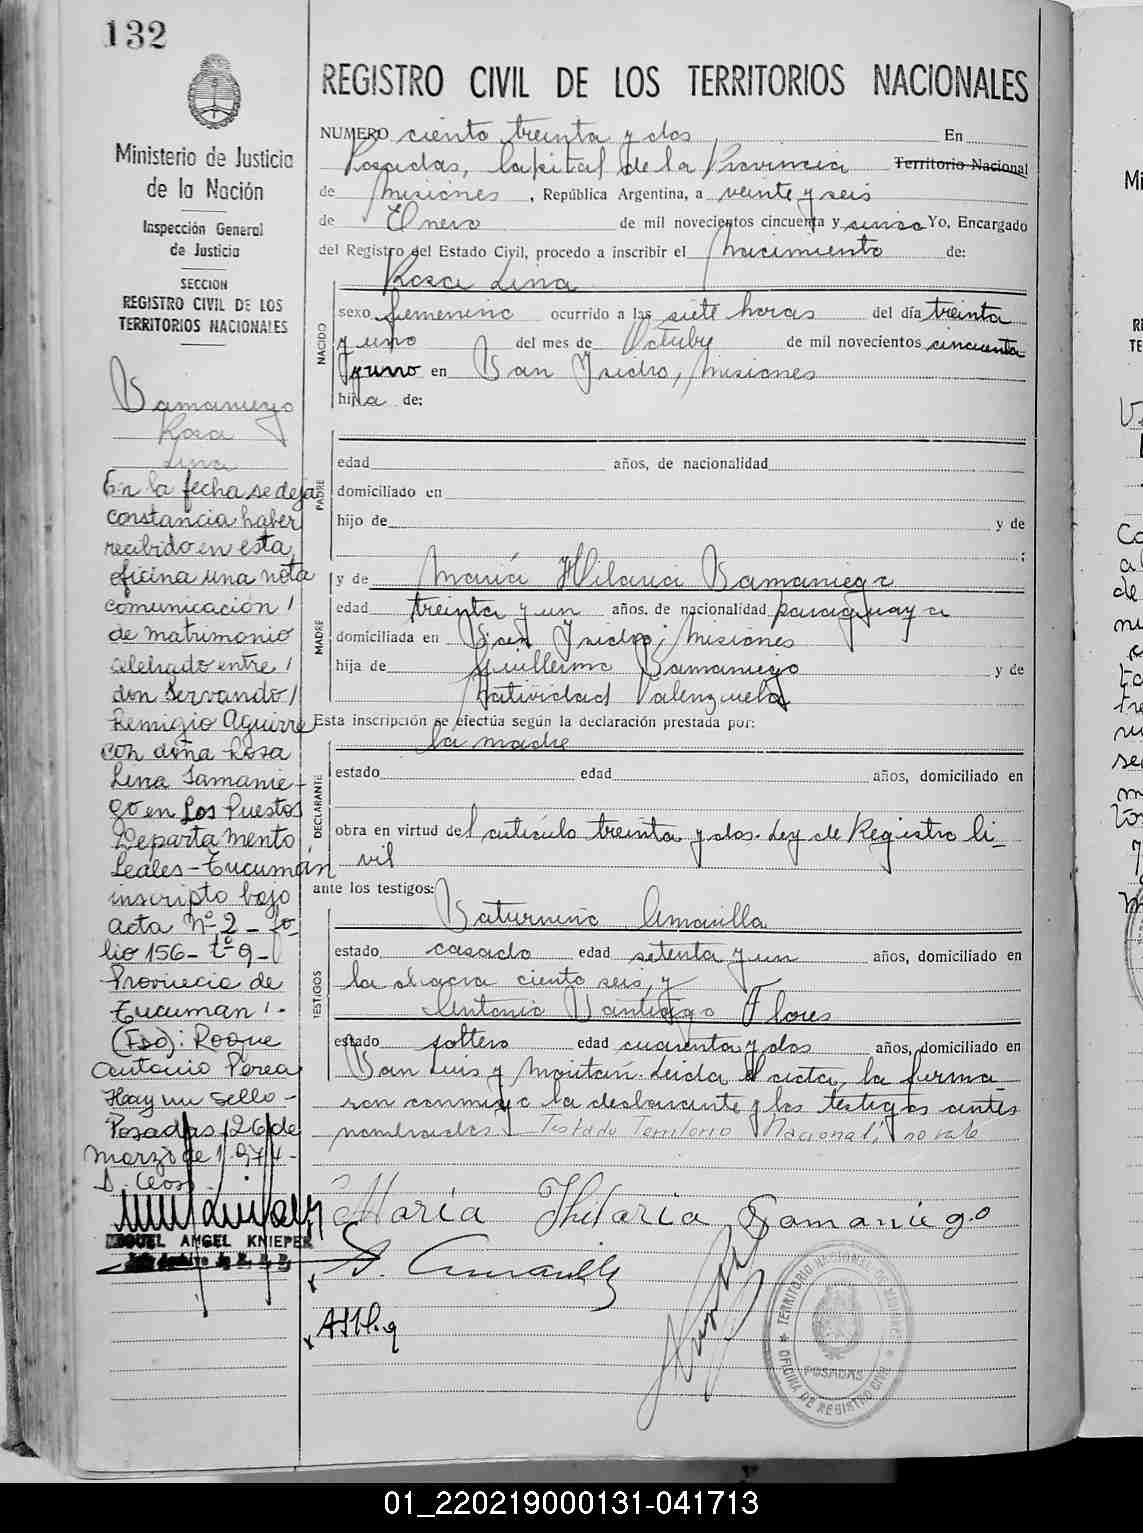 132
Ministerio de Justicia
de la Nación
Inspección General
de Justicia
SECCION
REGISTRO CIVIL DE LOS
TERRITORIOS NACIONALES
Samaniego
Rosa
Lina
En la fecha se deja
constancia haber
recibido en esta
oficina una nota
comunicación /
de matrimonio
celebrado entre /
don Servando /
Remigio Aguirre
con doña Rosa
Lina Samanie-
go en Los Puestos
Departamento
Leales-Tucumán
inscripto bajo
acta Nº 2 - fo-
lio 156 - tº 9 -
Provincia de
Tucuman . -
(Fdo): Roque
Antonio Perea
Hay un sello -
Posadas, 26 de
Marzo de 1.974 -
MIGUEL ANGEL KNIEPER
REGISTRO CIVIL DE LOS TERRITORIOS NACIONALES
NUMERO ciento treinta y dos En
Posadas, Capital de la Provincia Territorio Nacional
de Misiones, República Argentina, a veinte y seis
de Enero de mil novecientos cincuenta y cinco Yo, Encargado
del Registro del Estado Civil, procedo a inscribir el Nacimiento de:
Rosa Lina
NACIDO
sexo femenino ocurrido a las siete horas del día treinta
y uno del mes de Octubre de mil novecientos cincuenta
y uno en San Isidro, Misiones
hija de:
PADRE
edad años, de nacionalidad
domiciliado en
hijo de y de
;
MADRE
y de María Hilaria Samaniego
edad treinta y un años, de nacionalidad paraguaya
domiciliada en San Isidro, Misiones
hija de Guillermo Samaniego y de
Natividad Valenzuela
Esta inscripción se efectúa según la declaración prestada por:
la madre
DECLARANTE
estado edad años, domiciliado en
obra en virtud del artículo treinta y dos. Ley de Registro Ci-
vil
ante los testigos:
TESTIGOS
Saturnino Amarilla
estado casado edad setenta y un años, domiciliado en
la chacra ciento seis, y
Antonio Santiago Flores
estado soltero edad cuarenta y dos años, domiciliado en
San Luis y Moritán. Leida el acta, la firma-
ron conmigo la declarante y los testigos antes
nombrados. Testado "Territorio Nacional", no vale
María Hilaria Samaniego
S. Amarilla
TERRITORIO NACIONAL DE MISIONES
POSADAS
OFICINA DE REGISTRO CIVIL
01_220219000131-041713